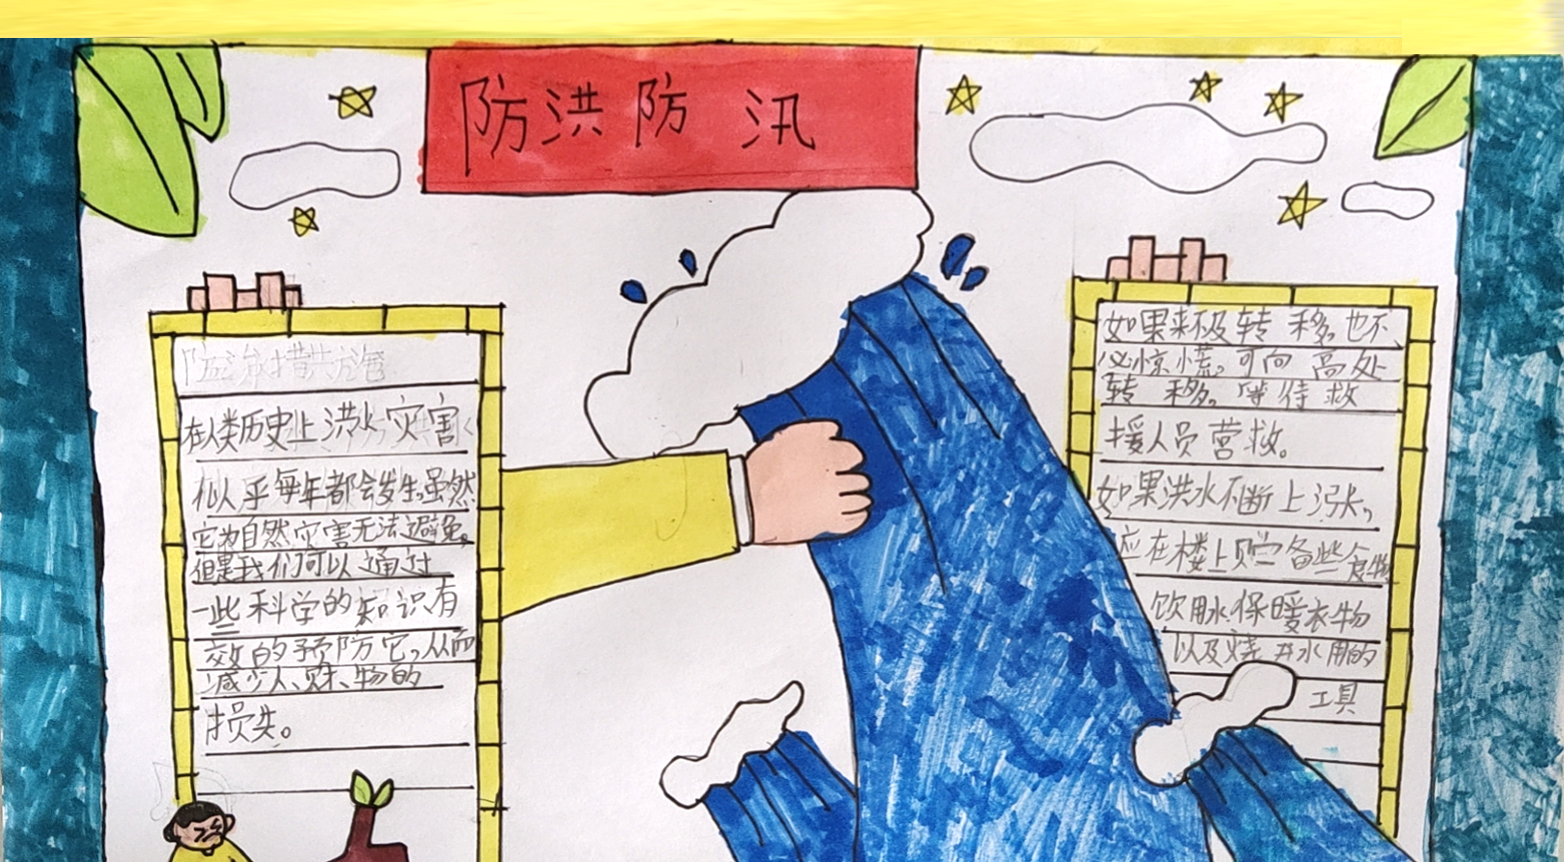 防洪防汛
防治措施
在人类历史上洪水灾害
似乎每年都会发生。虽然
它为自然灾害无法避免。
但是我们可以通过
一些科学的知识有
效的预防它,从而
减少人、财、物的
损失。
如果来不及转移。也不
必惊慌。可向高处
转移。等待救
援人员营救。
如果洪水不断上涨,
应在楼上贮备些食物
饮用水保暖衣物
以及烧开水用的
工具